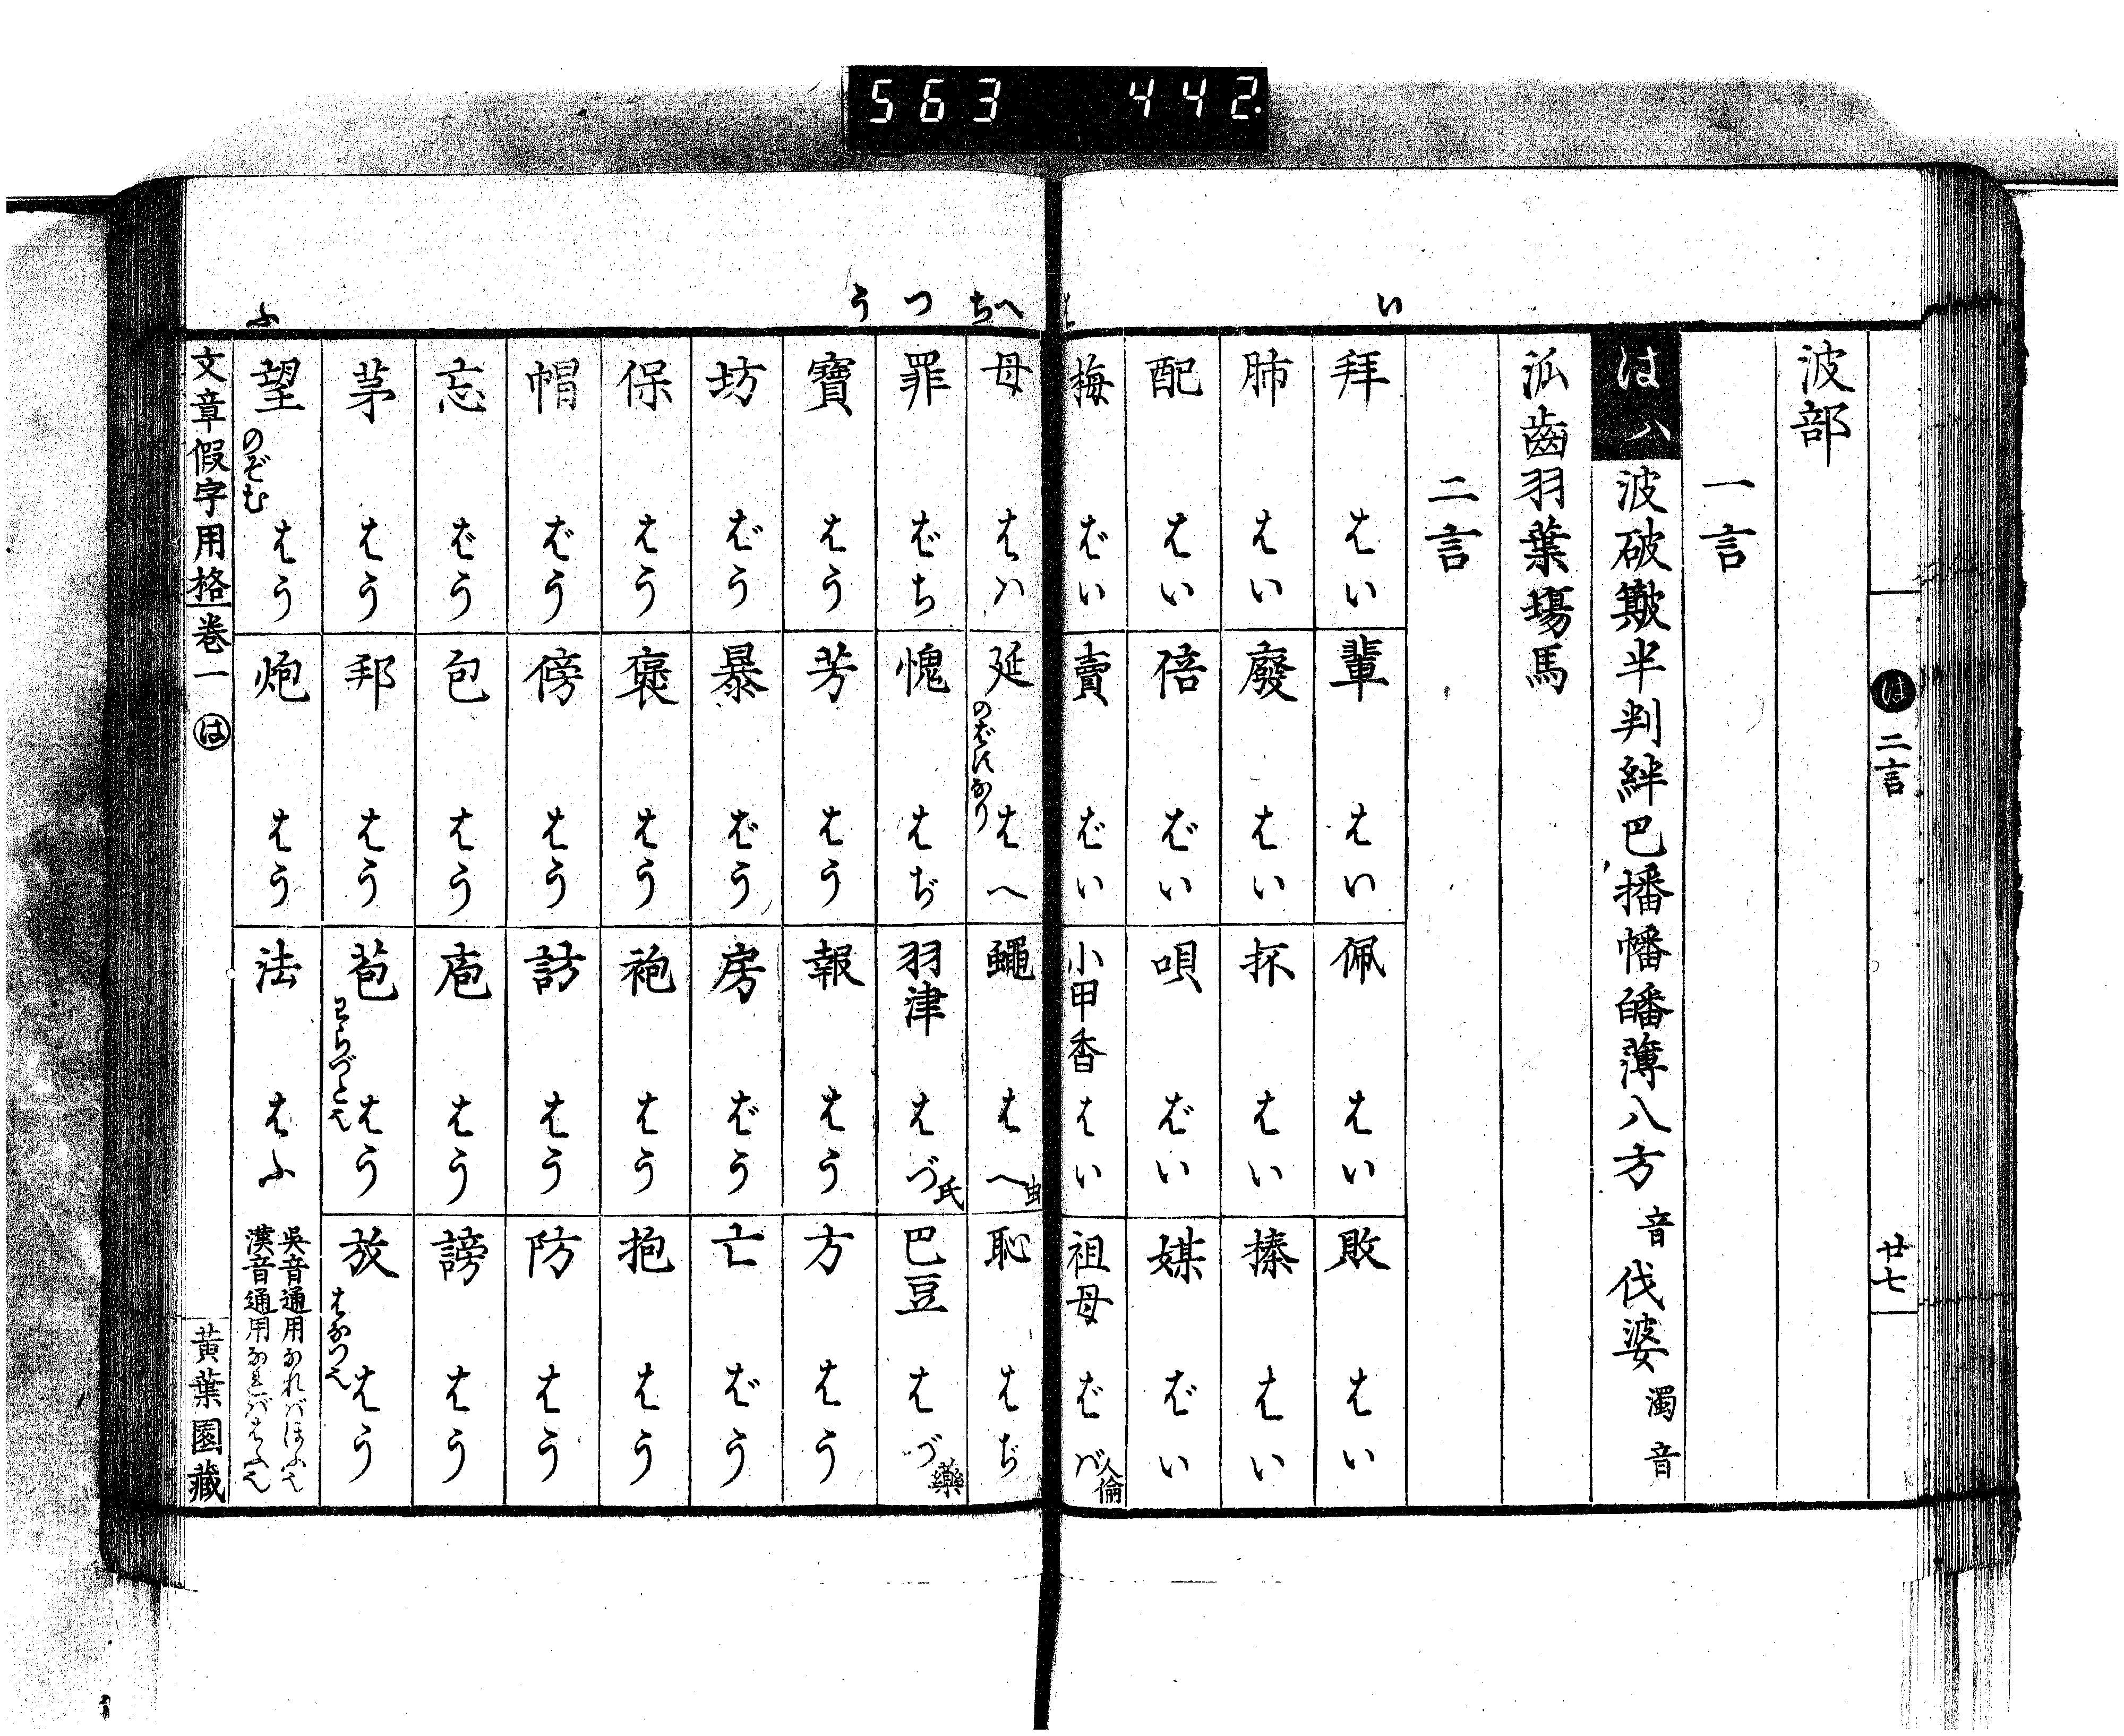 563 442
は 二言 廿七
波部
一言
はハ 波破簸半判絆巴播幡皤薄八方 音 伐婆 濁音
泒齒羽葉塲馬
二言
い
拜 はい 輩 はい 佩 はい 敗 はい
肺 はい 廢 はい 抔 はい 㨍 はい
配 はい 倍 ばい 唄 ばい 媒 ばい
梅 ばい 賣 ばい 小甲香 はい 祖母 ばば 人倫
へ ち つ う ふ
母 はハ 延 のばすなり はへ 蠅 はへ 虫 恥 はぢ
罪 ばち 愧 はぢ 羽津 はづ 氏 巴豆 はづ 藥
寶 はう 芳 はう 報 はう 方 はう
坊 ばう 暴 ばう 房 ばう 亡 ばう
保 はう 褒 はう 袍 はう 抱 はう
帽 ばう 傍 はう 訪 はう 防 はう
忘 ばう 包 はう 庖 はう 謗 はう
茅 はう 邦 はう 苞 わらづと也 はう 放 はなつ也 はう
望 のぞむ はう 炮 はう 法 はふ 吳音通用なればほふ也
漢音通用なればはふ也
文章假字用格 卷一 は 黄葉園藏